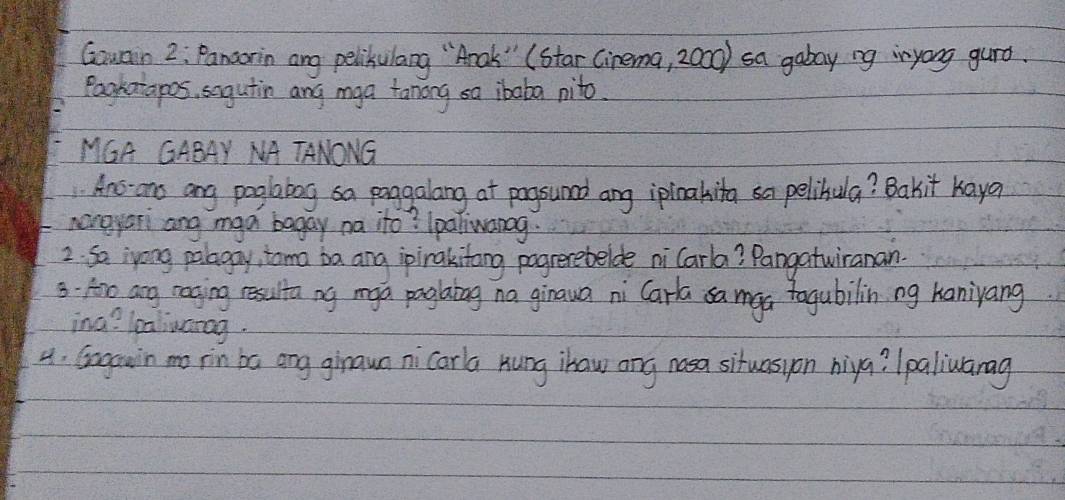 Gawain 2: Panoorin ang pelikulang "Anak" (Star Cinema, 2000) sa gabay ng inyong guro.
Pagkatapos, sagutin ang mga tanong sa ibaba nito.
MGA GABAY NA TANONG
1. Ano-ano ang paglabag sa paggalang at pagsunod ang ipinakita sa pelikula? Bakit kaya
nangyari ang mga bagay na ito? Ipaliwanag.
2. Sa iyong palagay, tama ba ang ipinakitang pagrerebelde ni Carla? Pangatwiranan.
3. Ano ang naging resulta ng mga paglabag na ginawa ni Carla sa mga tagubilin ng kaniyang
ina? Ipaliwanag.
4. Gagawin mo rin ba ang ginawa ni Carla kung ikaw ang nasa sitwasyon niya? Ipaliwanag